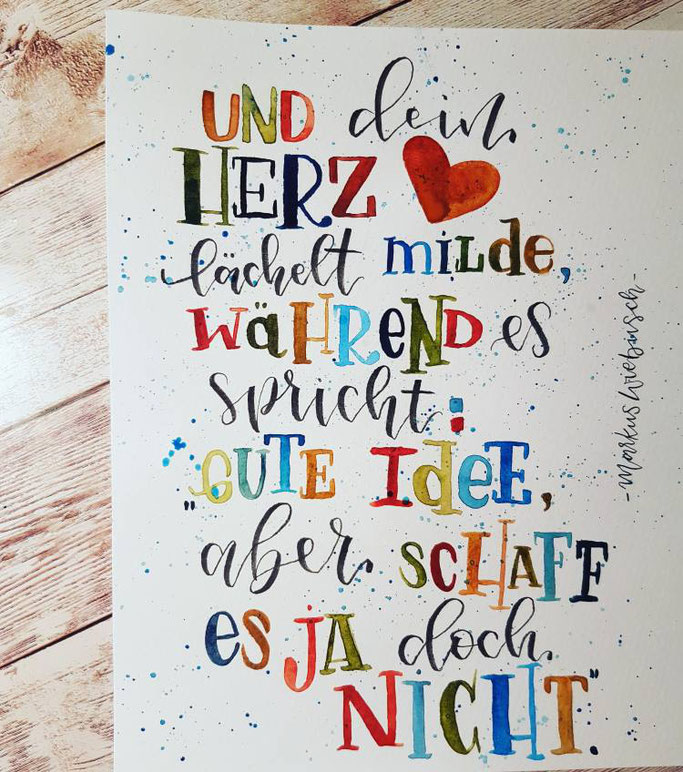 UND dein
HERZ
lächelt milde,
WÄHREND es
spricht:
„GUTE IDEE,
aber SCHAFF
es JA doch
NICHT".
- Markus Wiebusch -